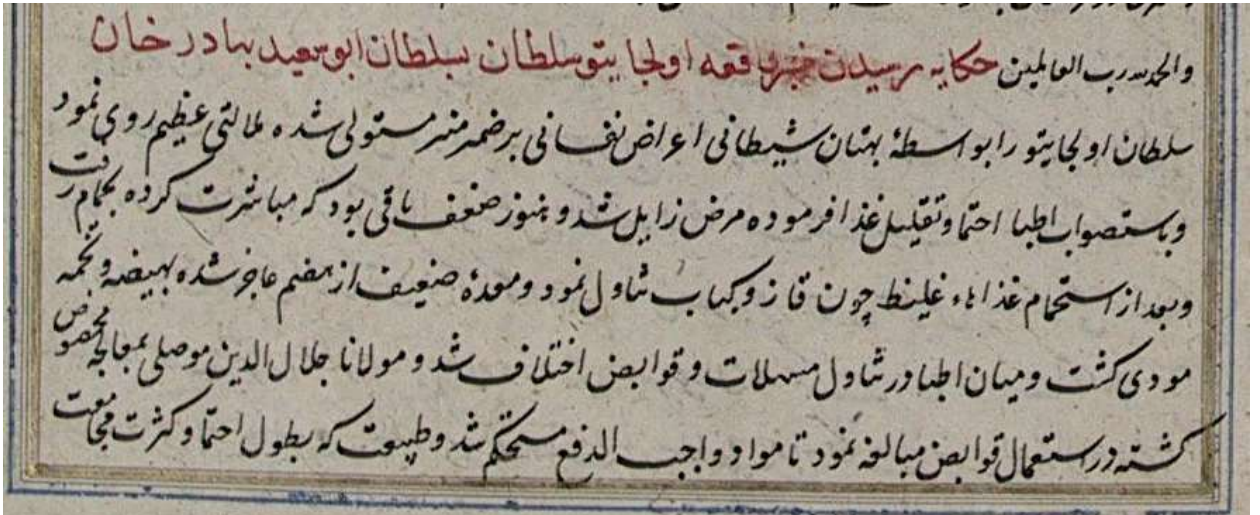 والحمد لله رب العالمین حکایه رسیدن خبر واقعه اولجایتو سلطان بسلطان ابو سعید بهادر خان
سلطان اولجایتو را بواسطهٔ بهتان شیطانی اعراض نفسانی بر ضمیر منیر مستولی شده ملالتی عظیم روی نمود
وباستصواب اطبا احتما وتقلیل غذا فرموده مرض زایل شد و هنوز ضعف باقی بود که مباشرت کرده بحمام رفت
وبعد از استحمام غذاهاء غلیظ چون قاز وکباب تناول نمود ومعدهٔ ضعیف از هضم عاجز شده بهیضه وتخمه
مودی کشت ومیان اطبا در تناول مسهلات و قوابض اختلاف شد و مولانا جلال الدین موصلی بمعالجه مخصوص
کشته در استعمال قوابض مبالغه نمود تا مواد واجب الدفع مستحکم شد وطبیعت که بطول احتما وکثرت مجامعت